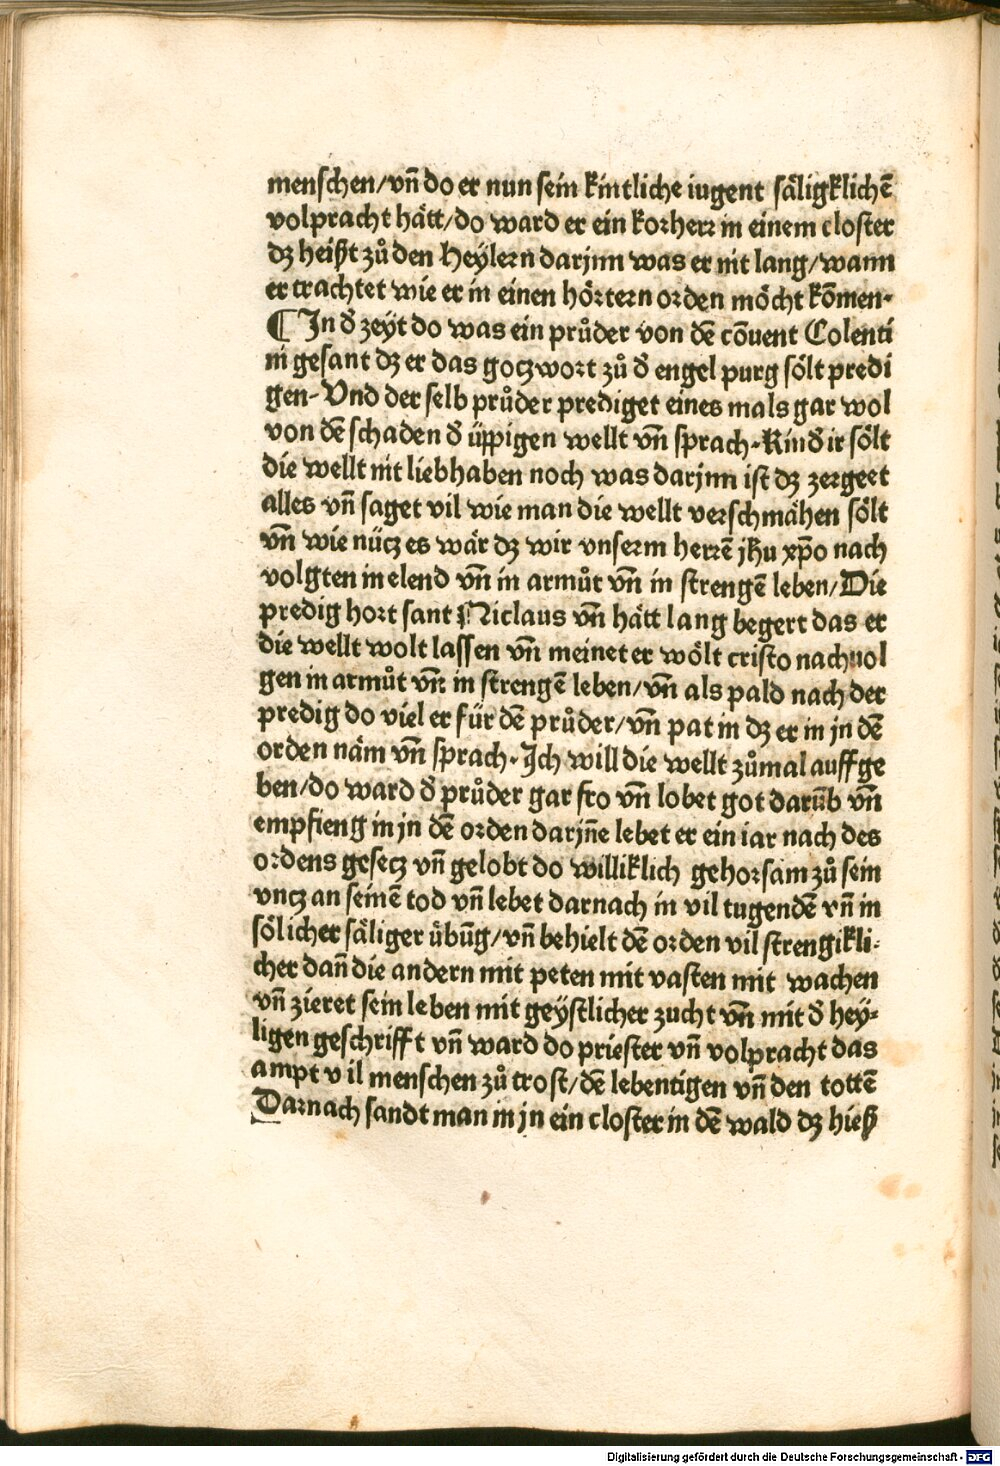 menschen/vn̄ do er nun sein kintliche iugent säligklichē
volpracht hätt/do ward er ein korherr in einem closter
dz heißt zů den Heylern darjnn was er nit lang/wann
er trachtet wie er in einen hörtern orden möcht kōmen·
¶ In đ zeyt do was ein průder von dē cōuent Colenti
ni gesant dz er das goczwort zů đ engel purg sölt predi
gen· Vnd der selb průder prediget eines mals gar wol
von dē schaden đ üppigen wellt vn̄ sprach· Kinđ ir sölt
die wellt nit liebhaben noch was darjnn ist dz zergeet
alles vn̄ saget vil wie man die wellt verschmähen sölt
vn̄ wie nücz es wär dz wir vnserm herrē jhu xp̄o nach
volgten in elend vn̄ in armůt vn̄ in strengē leben/Die
predig hort sant Niclaus vn̄ hätt lang begert das er
die wellt wolt lassen vn̄ meinet er wölt cristo nachuol
gen in armůt vn̄ in strengē leben/vn̄ als pald nach der
predig do viel er für dē průder/vn̄ pat in dz er in jn dē
orden näm vn̄ sprach· Ich will die wellt zůmal auffge
ben/do ward đ průder gar fro vn̄ lobet got darūb vn̄
empfieng in jn dē orden darjn̄e lebet er ein iar nach des
ordens gesecz vn̄ gelobt do williklich gehorsam zů sein
vncz an seinē tod vn̄ lebet darnach in vil tugendē vn̄ in
sölicher säliger übūg/vn̄ behielt dē orden vil strengikli-
cher dan̄ die andern mit peten mit vasten mit wachen
vn̄ zieret sein leben mit geystlicher zucht vn̄ mit đ hey-
ligen geschrifft vn̄ ward do priester vn̄ volpracht das
ampt vil menschen zů trost/dē lebentigen vn̄ den tottē
Darnach sandt man in jn ein closter in dē wald dz hieß
Digitalisierung gefördert durch die Deutsche Forschungsgemeinschaft - DFG